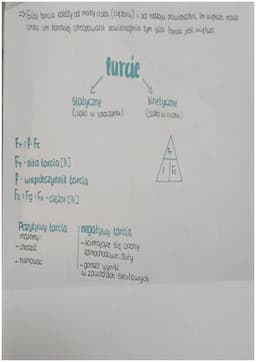 => Siła tarcia zależy od masy ciała, (ciężaru) i od rodzaju powierzchni. Im większa masa
oraz im bardziej chropowata powierzchnia tym siła tarcia jest większa.
tarcie
Statyczne
(ciało w spoczynku)
Kinetyczne
(ciało w ruchu)
FT = f · Fc
FT - siła tarcia [N]
f - współczynnik tarcia
Fc = Fg = FN - ciężar [N]
FT
f Fc
Pozytywy tarcia
możemy:
- chodzić
- hamować
negatywy tarcia
- ścierające się opony
samochodowe, buty
- gorsze wyniki
w zawodach sportowych